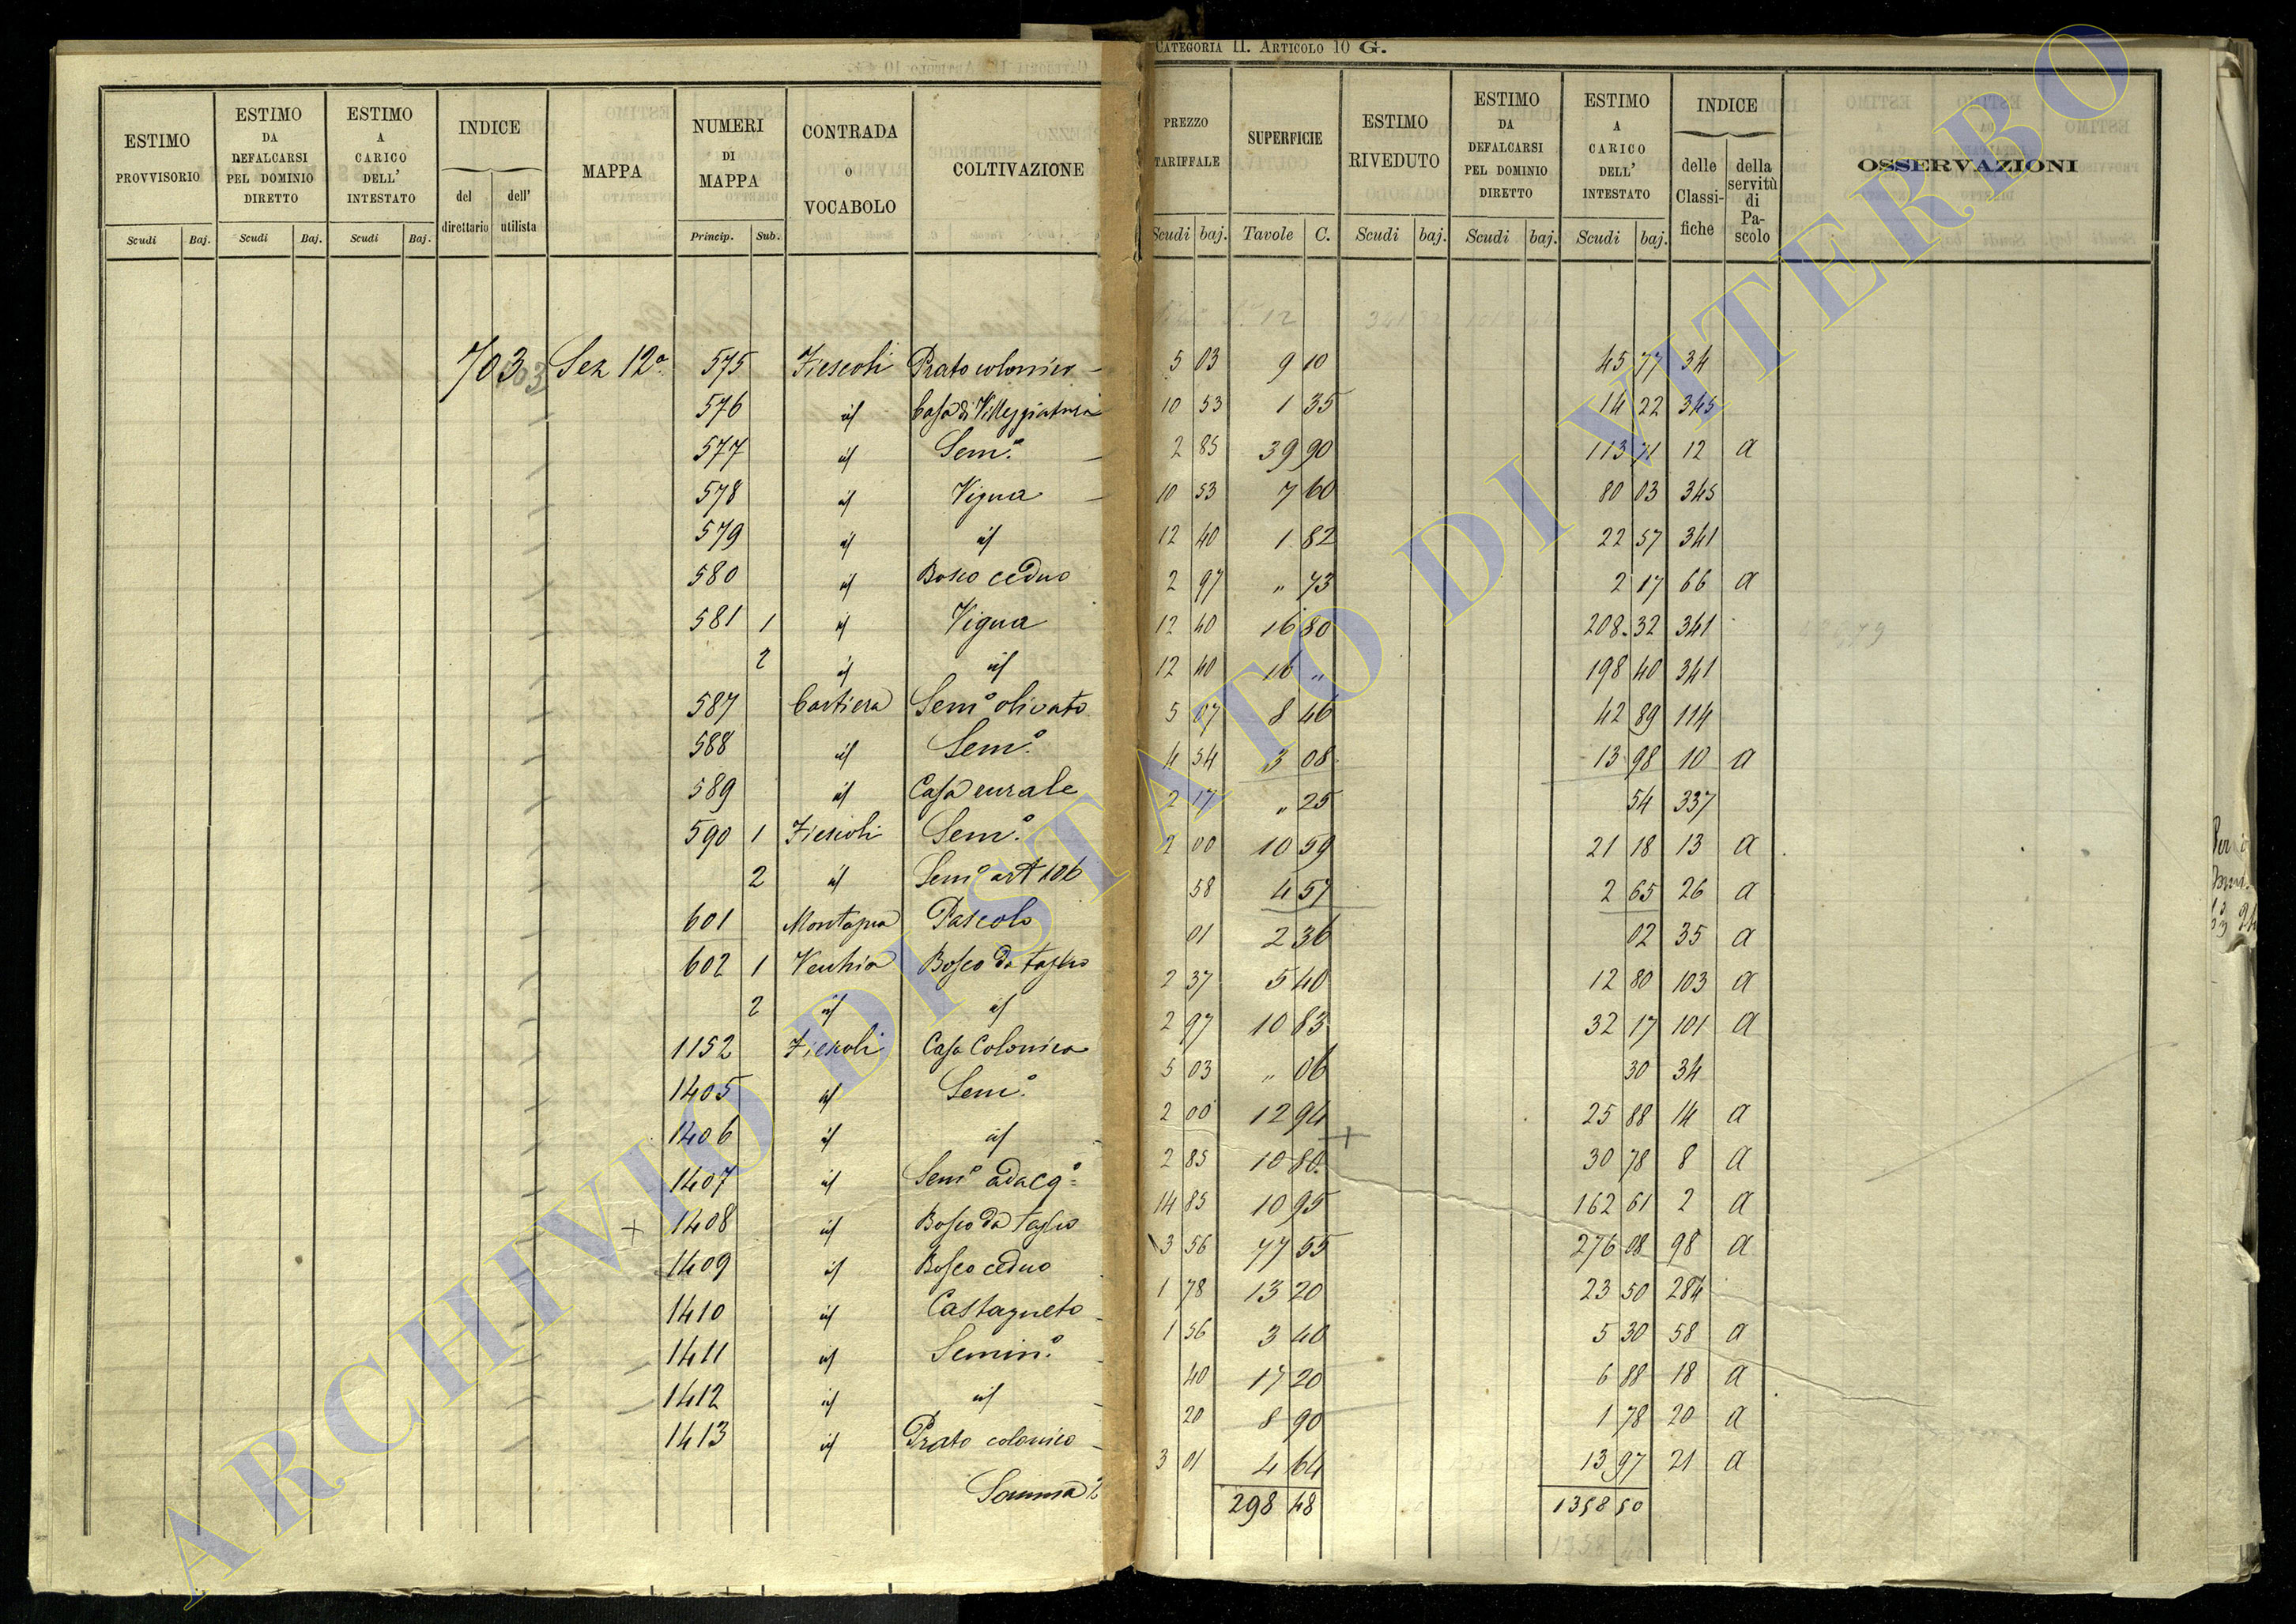 CATEGORIA II. ARTICOLO 10 G.
ESTIMO PROVVISORIO Scudi Baj. | ESTIMO DA DEFALCARSI PEL DOMINIO DIRETTO Scudi Baj. | ESTIMO A CARICO DELL' INTESTATO Scudi Baj. | INDICE del direttario dell' utilista | MAPPA | NUMERI DI MAPPA Princip. Sub. | CONTRADA o VOCABOLO | COLTIVAZIONE | PREZZO TARIFFALE Scudi baj. | SUPERFICIE Tavole C. | ESTIMO RIVEDUTO Scudi baj. | ESTIMO DA DEFALCARSI PEL DOMINIO DIRETTO Scudi baj. | ESTIMO A CARICO DELL' INTESTATO Scudi baj. | INDICE delle Classifiche della servitù di Pascolo | OSSERVAZIONI
703 Sez 12a 575 Fiescoli Prato colonico 5 03 9 10 45 77 34
576 id Casa di Villeggiatura 10 53 1 35 14 22 345
577 id Semo. 2 85 39 90 113 71 12 a
578 id Vigna 10 53 7 60 80 03 345
579 id id 12 40 1 82 22 57 341
580 id Bosco ceduo 2 97 " 73 2 17 66 a
581 1 id Vigna 12 40 16 80 208 32 341
2 id id 12 40 16 " 198 40 341
587 Cartiera Semo olivato 5 07 8 46 42 89 114
588 id Semo. 4 54 3 08 13 98 10 a
589 id Casa rurale 2 17 " 25 54 337
590 1 Fiescoli Semo. 2 00 10 59 21 18 13 a
2 id Semo art 106 58 4 57 2 65 26 a
601 Montagna Pascolo 01 2 36 02 35 a
602 1 Vecchia Bosco da taglio 2 37 5 40 12 80 103 a
2 id id 2 97 10 83 32 17 101 a
1152 Fiescoli Casa Colonica 5 03 " 06 30 34
1405 id Semo. 2 00 12 94 25 88 14 a
1406 id id 2 85 10 80 30 78 8 a
1407 id Semo adacqo 14 85 10 95 162 61 2 a
+ 1408 id Bosco da taglio 3 56 77 55 276 08 98 a
1409 id Bosco ceduo 1 78 13 20 23 50 284
1410 id Castagneto 1 56 3 40 5 30 58 a
1411 id Semino. 40 17 20 6 88 18 a
1412 id id 20 8 90 1 78 20 a
1413 id Prato colonico 3 01 4 64 13 97 21 a
Somma 298 48 1358 50
ARCHIVIO DI STATO DI VITERBO